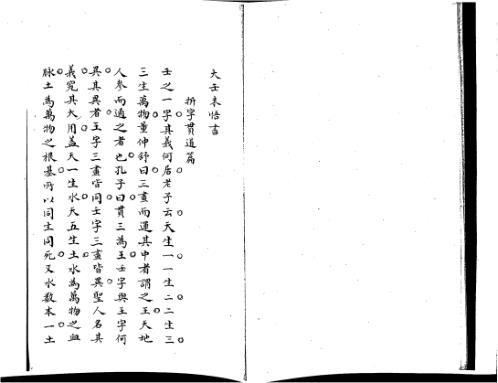 大壬未悟書
拆字貫道篇
壬之一字其義何居老子云天生一一生二二生三
三生萬物董仲舒曰三畫而連其中者謂之王天地
人參而通之者也孔子曰貫三為王壬字與王字何
異其異者王字三畫皆同壬字三畫皆異聖人名其
義究其大用蓋天一生水天五生土水為萬物之血
脉土為萬物之根基所以同生同死又水數本一土